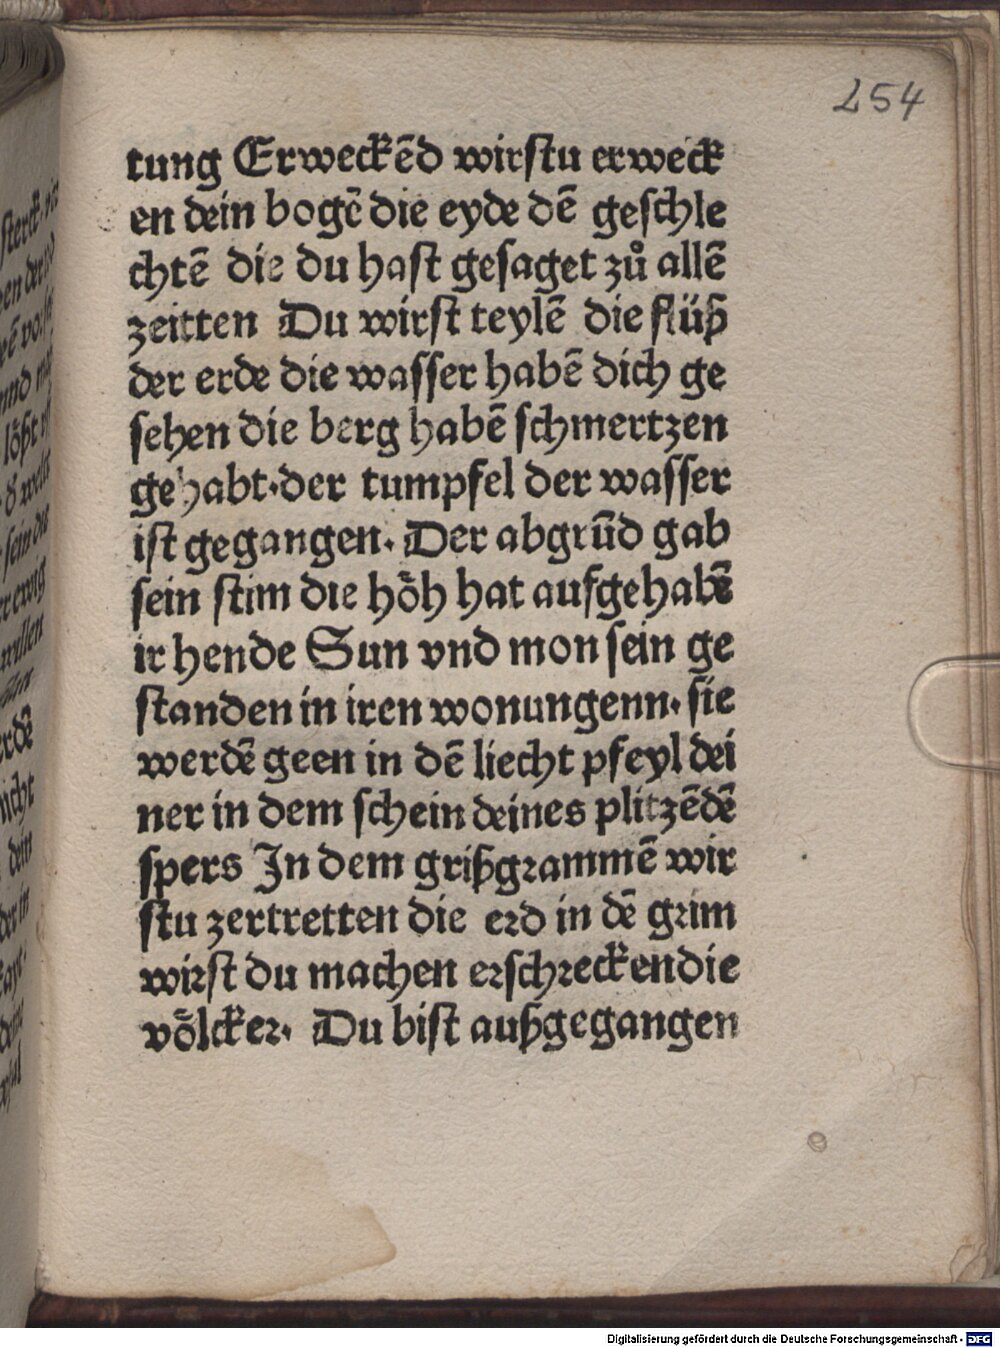 254
tung Erweckēd wirstu erweck
en dein bogē die eyde dē geschle
chtē die du hast gesaget zů allē
zeitten Du wirst teylē die flüß
der erde die wasser habē dich ge
sehen die berg habē schmertzen
gehabt·der tumpfel der wasser
ist gegangen· Der abgrūd gab
sein stim die höh hat aufgehabē
ir hende Sun vnd mon sein ge
standen in iren wonungenn· sie
werdē geen in dē liecht pfeyl dei
ner in dem schein deines plitzēdē
spers In dem grißgrammē wir
stu zertretten die erd in dē grim
wirst du machen erschrecken die
völcker· Du bist außgegangen
Digitalisierung gefördert durch die Deutsche Forschungsgemeinschaft - DFG